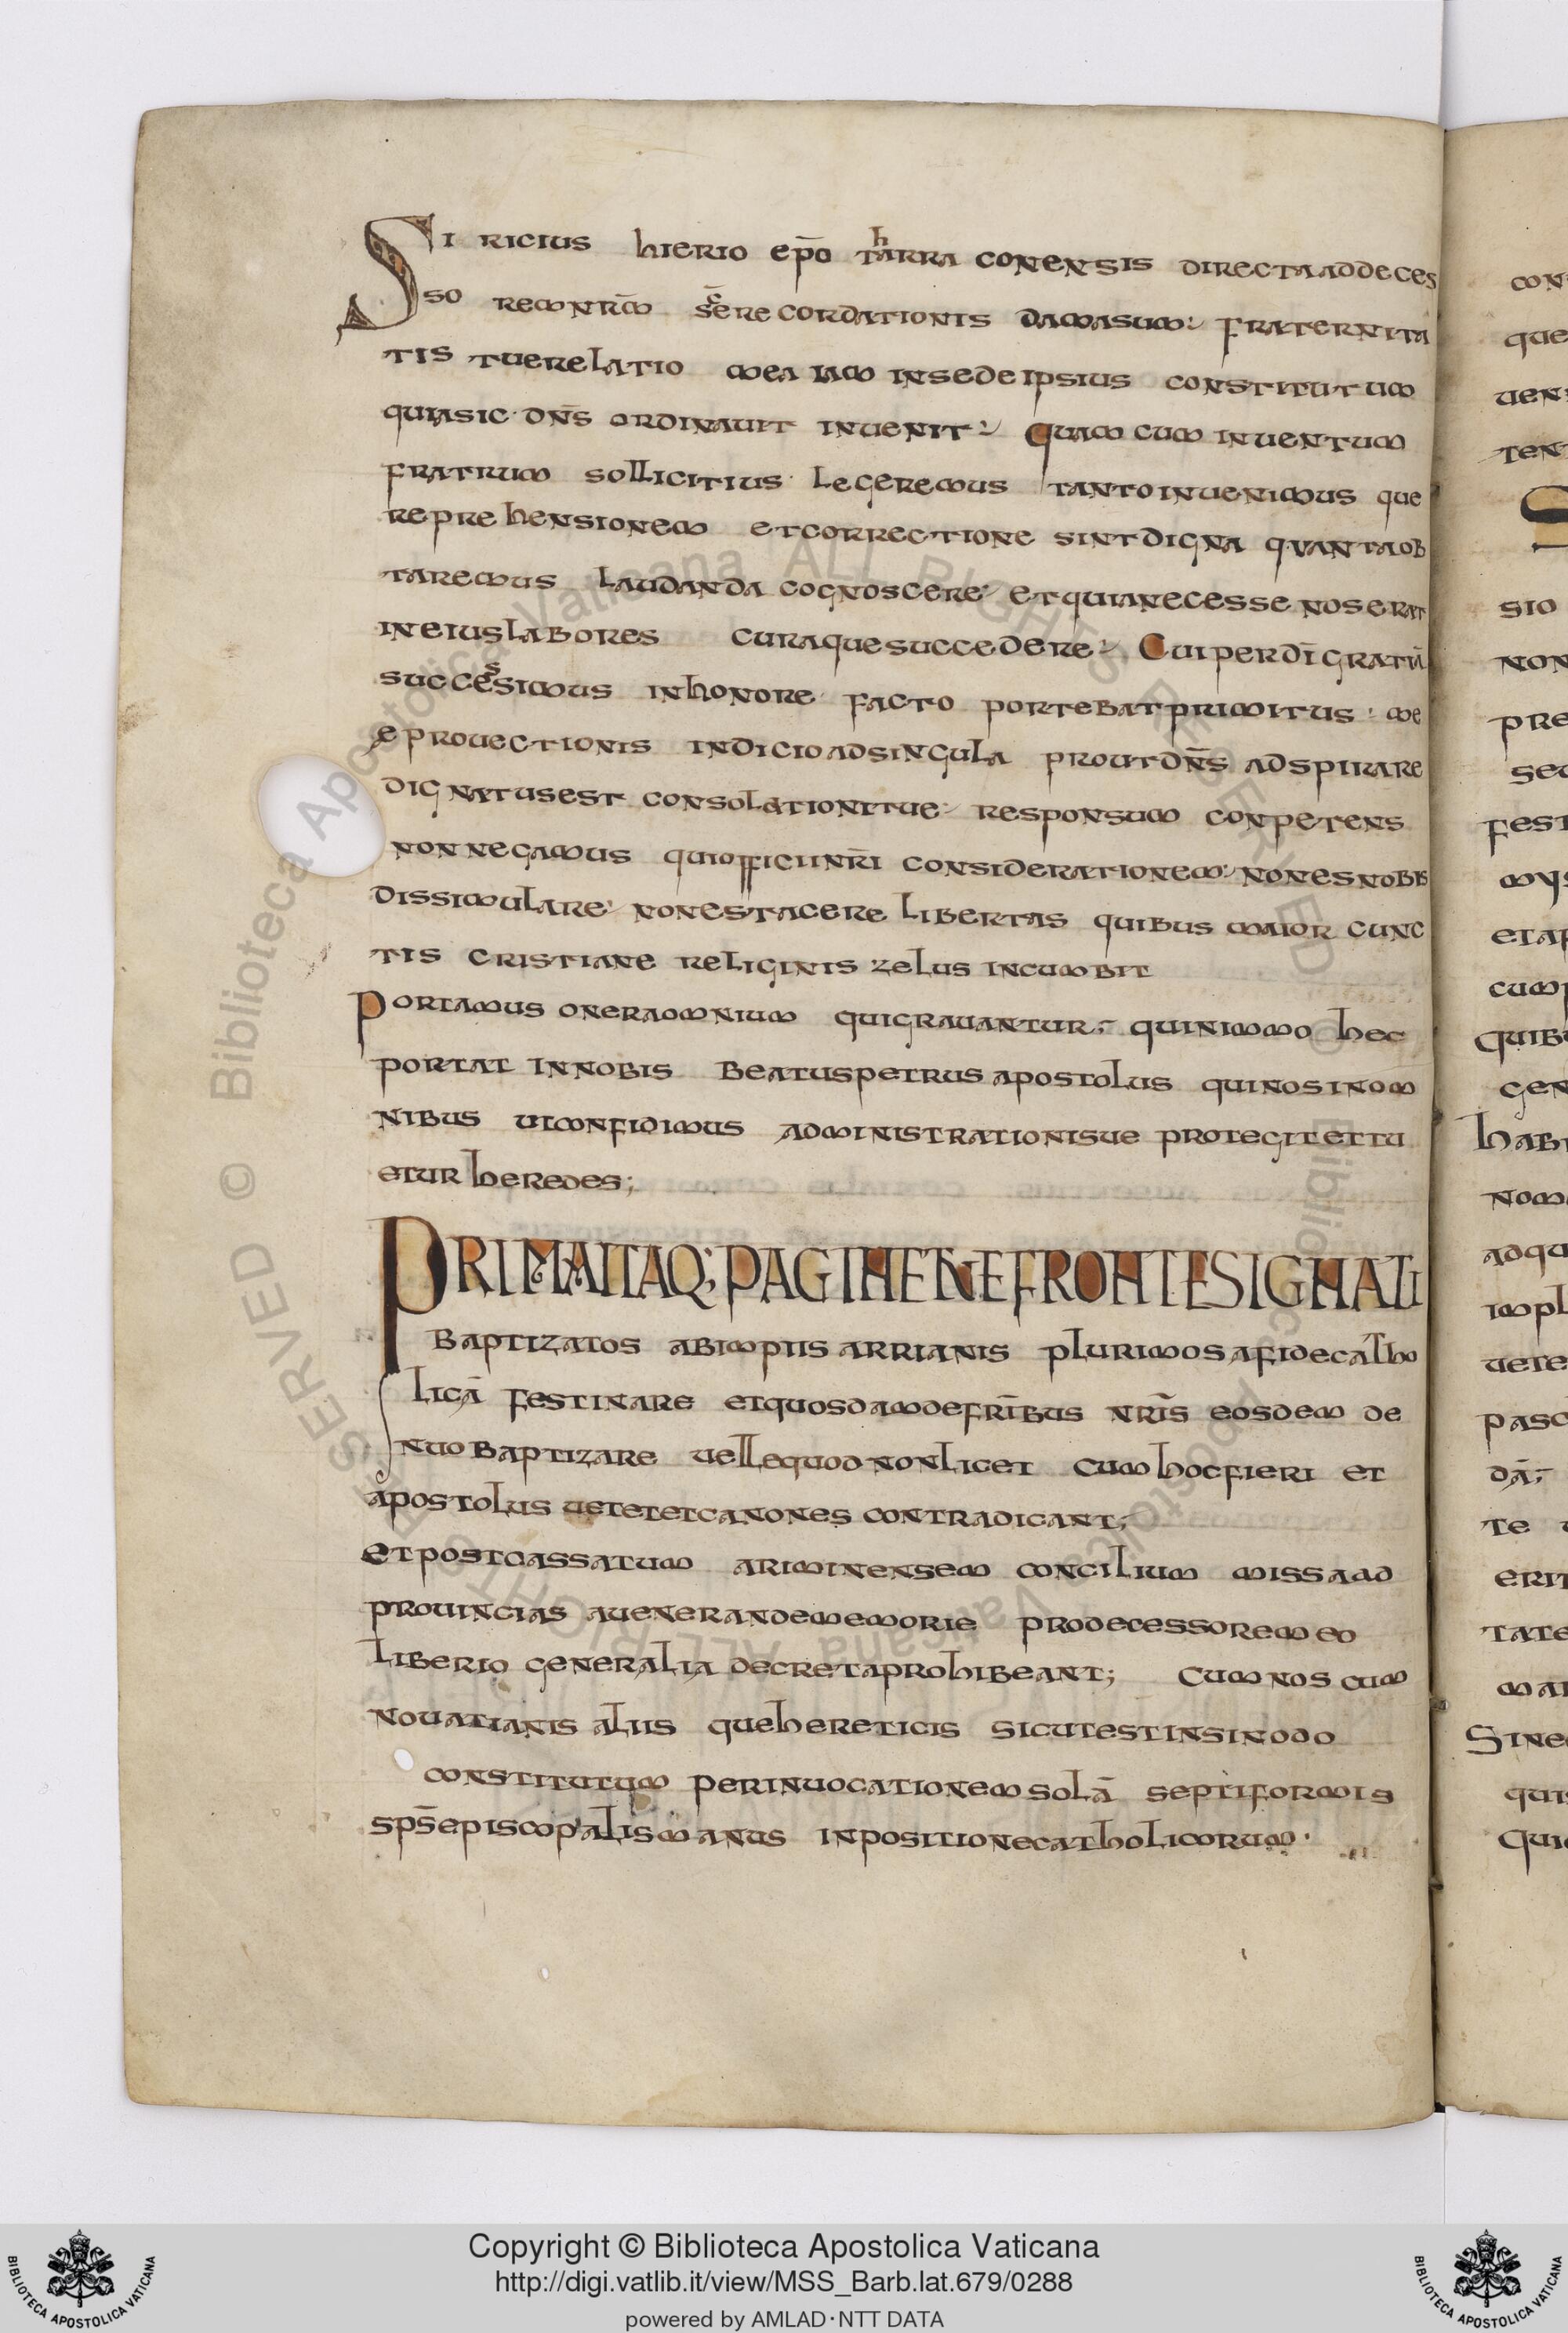 Siricius hierio ep̄o tharraconensis directa ad deces
so rem nr̄m sc̄e recordationis damasum fraternita
tis tue relatio mea iam in sede ipsius constitutum
quia sic dn̄s ordinauit inuenit Quam cum inuentum
fratrum sollicitius legeremus tanto inuenimus que
reprehensionem et correctione sint digna quanta ob
taremus laudanda cognoscere et quia necesse nos erat
in eius labores curaque succedere Cui per dī gratiā
successimus in honore facto portebat primitus me
e prouectionis indicio ad singula prout dn̄s adspirare
dignatus est consolationi tue responsum conpetens
non negamus qui officii nr̄i considerationem non es nobis
dissimulare non es tacere libertas quibus maior cunc
tis cristiane religinis zelus incumbit
Portamus onera omnium qui grauantur quinimmo hec
portat in nobis beatus petrus apostolus qui nos in om
nibus ut confidimus administrationis ue protegit et tu
etur heredes;
PRIMA ITAQ; PAGINE TNE FRONTE SIGNATI
baptizatos ab impiis arrianis plurimos a fide catho
licā festinare et quosdam de fr̄ibus nr̄is eosdem de
nuo baptizare uelle quod non licet cum hoc fieri et
apostolus uetet et canones contradicant;
Et post cassatum ariminensem concilium missa ad
prouincias a uenerande memorie prodecessore meo
liberio generalia decreta prohibeant; Cum nos cum
nouatianis aliis que hereticis sicut est in sinodo
constitutum per inuocationem solā septiformis
sp̄s episcopalis manus inpositione catholicorum
con
que
uen
ten
S
sio
non
pre
seu
fest
mys
et ap
cum
quib
gen
habi
nom
adqu
impl
uete
pasc
dā;
te
erit
tate
mai
Sine
quis
Qui
Copyright © Biblioteca Apostolica Vaticana
http://digi.vatlib.it/view/MSS_Barb.lat.679/0288
powered by AMLAD·NTT DATA
BIBLIOTECA APOSTOLICA VATICANA
BIBLIOTECA APOSTOLICA VATICANA